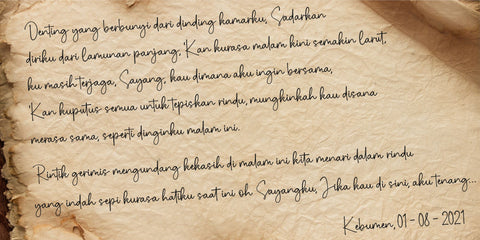 Denting yang berbunyi dari dinding kamarku, Sadarkan
diriku dari lamunan panjang, 'Kan kurasa malam kini semakin larut,
ku masih terjaga, Sayang, kau dimana aku ingin bersama,
'Kan kuputus semua untuk tepiskan rindu, mungkinkah kau disana
merasa sama, seperti dinginku malam ini.
Rintik gerimis mengundang kekasih di malam ini kita menari dalam rindu
yang indah sepi kurasa hatiku saat ini oh Sayangku, Jika kau di sini, aku tenang...
Kebumen, 01 - 08 - 2021